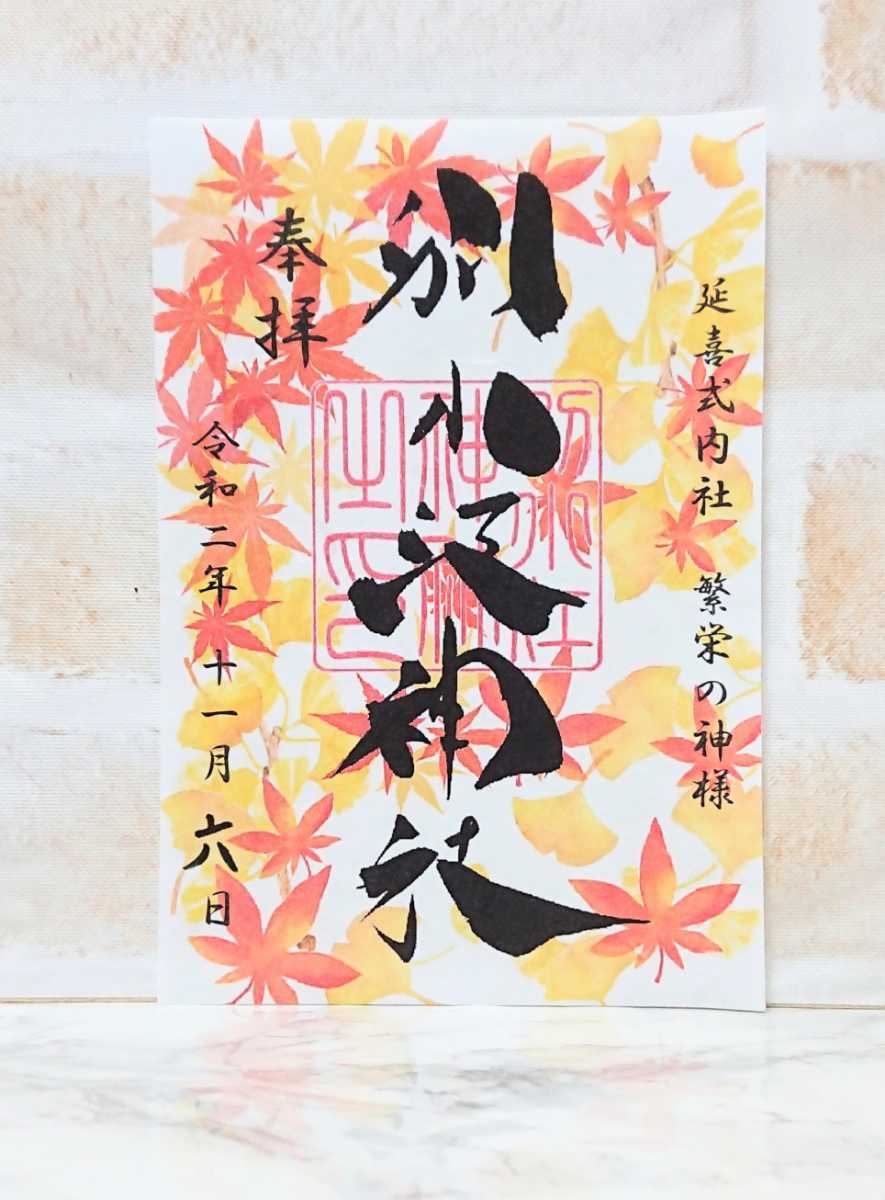 延喜式内社 繁栄の神様
別小江神社
奉拝
令和二年 十一月 六日